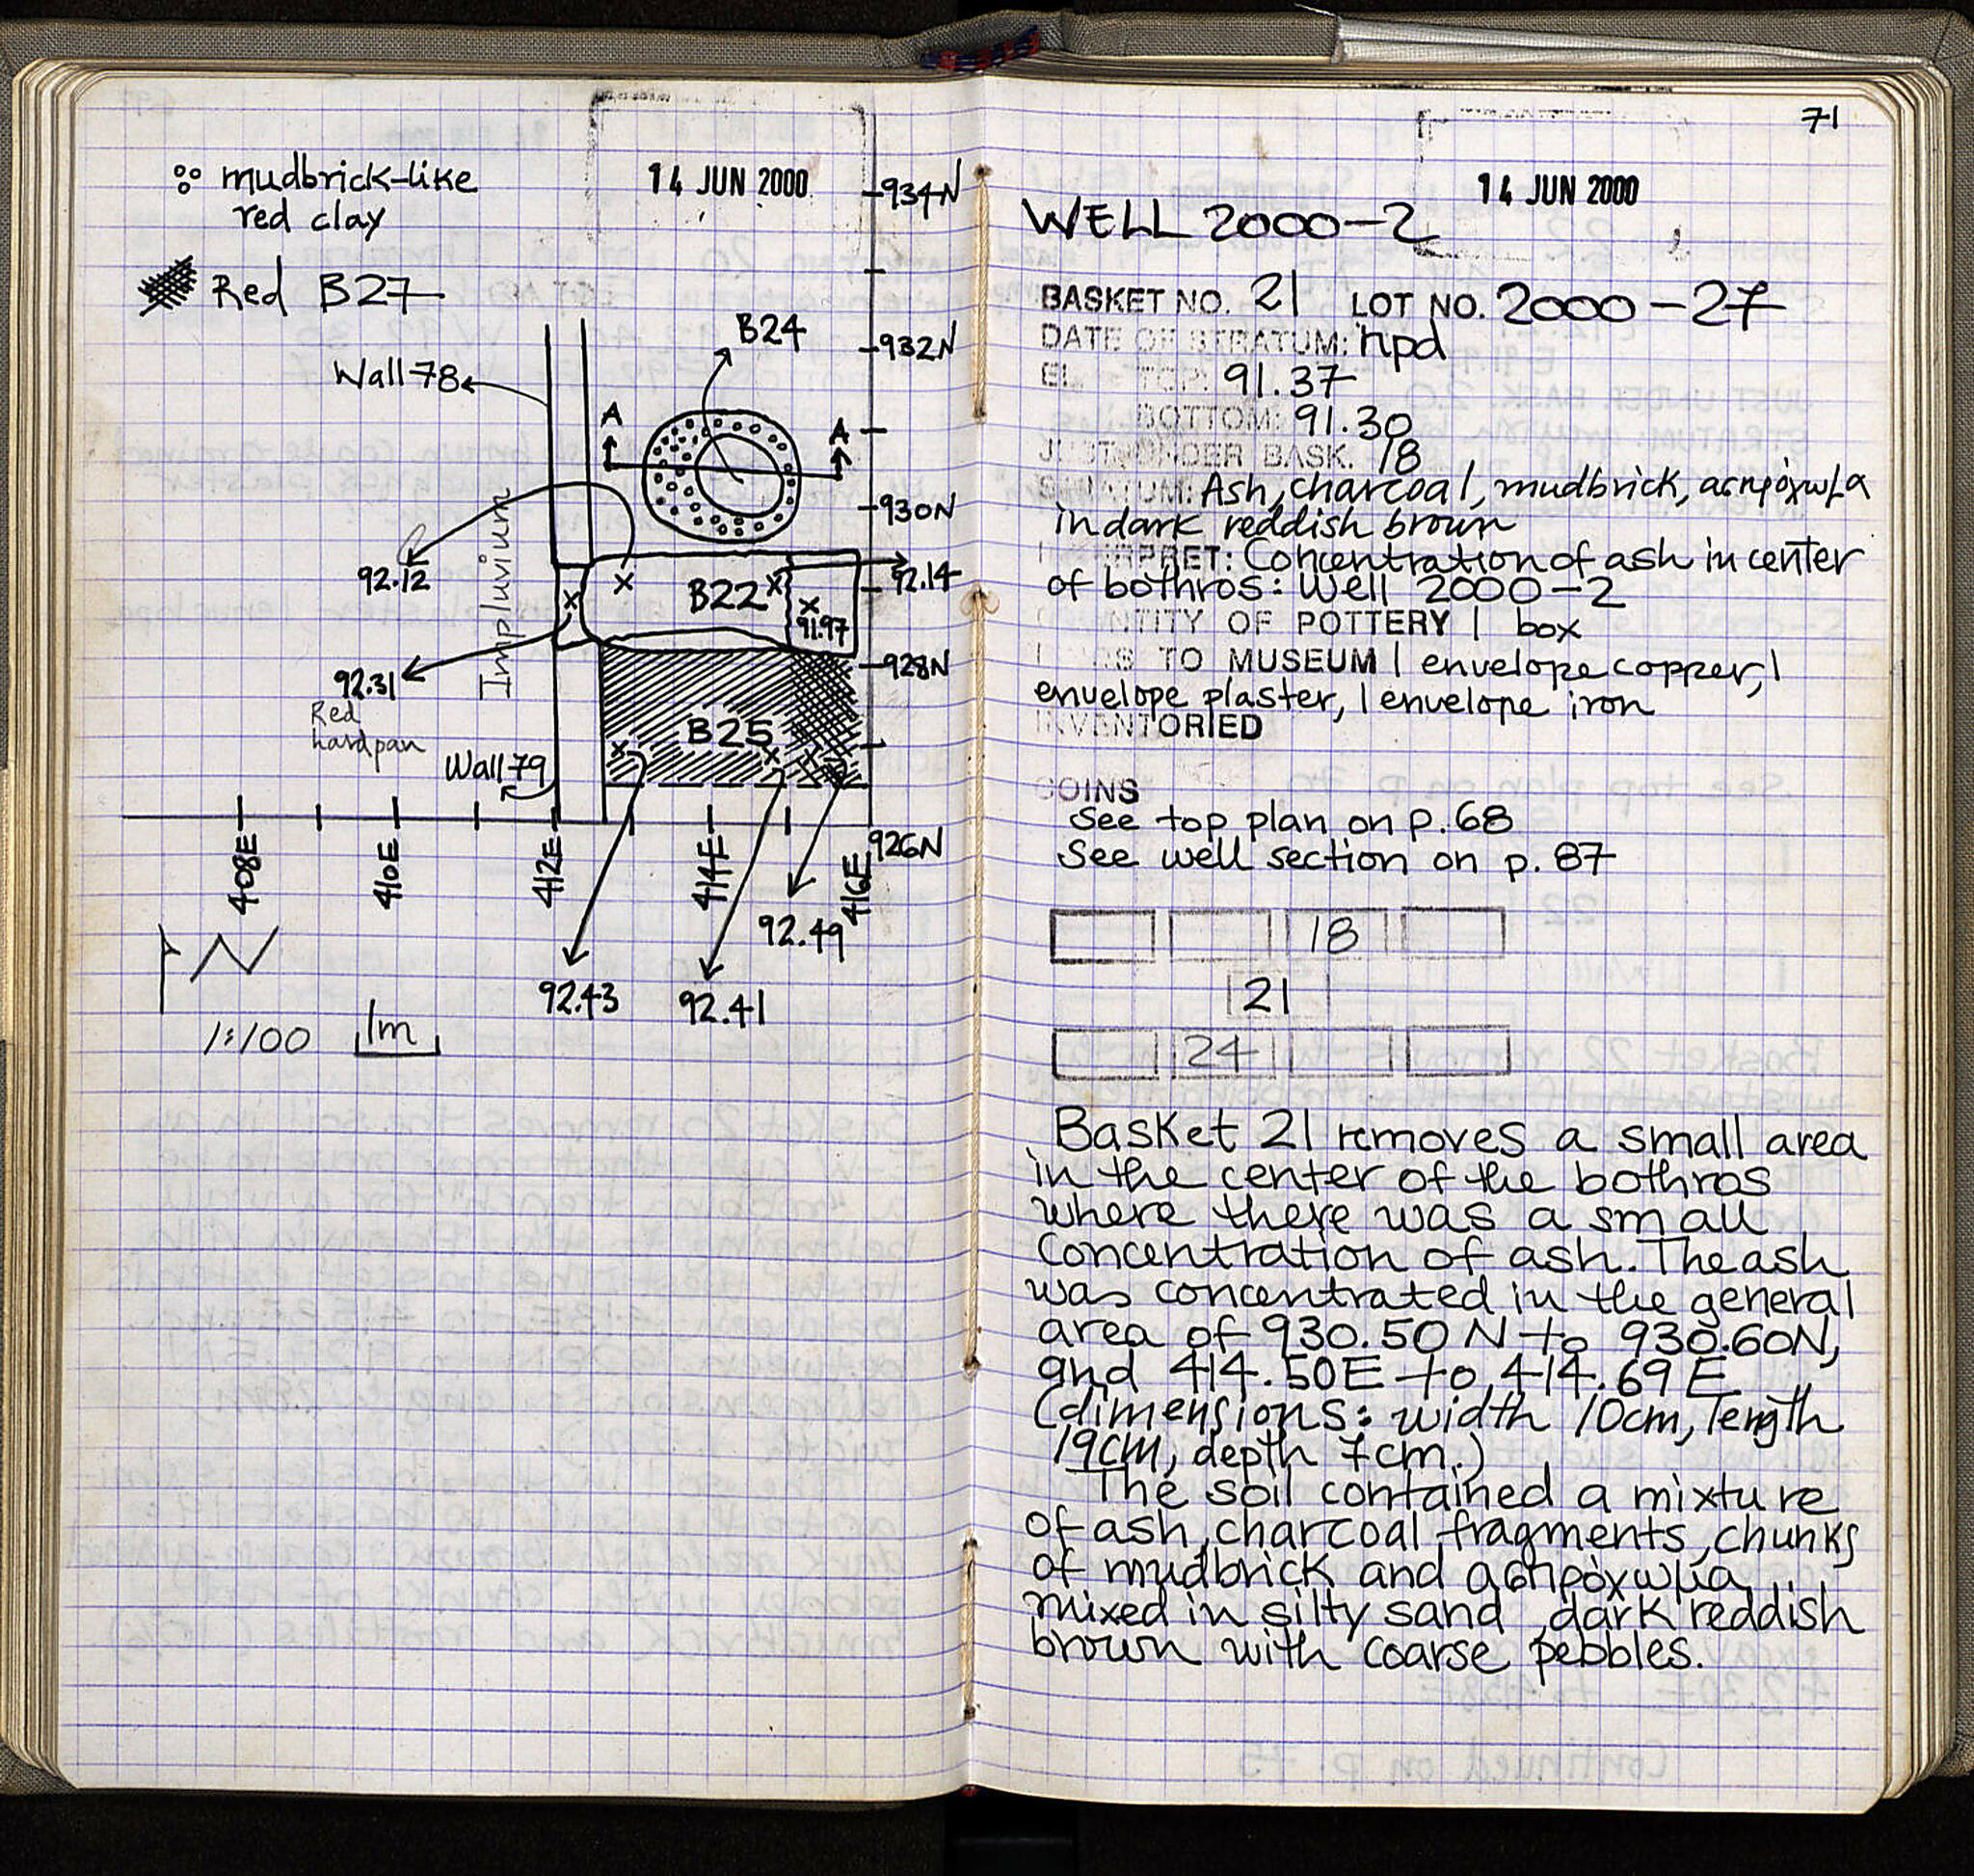 mudbrick-like
red clay
Red B27
14 JUN 2000
934N
B24
932N
Wall 78
A
A
930N
92.12
Impluvium
B22
92.14
91.97
928N
92.31
Red
hardpan
B25
Wall 79
926N
408E
410E
412E
414E
416E
92.49
92.43
92.41
N
1:100
1m
71
14 JUN 2000
WELL 2000-2
BASKET NO. 21 LOT NO. 2000-27
DATE OF STRATUM: npd
EL. TOP: 91.37
BOTTOM: 91.30
JUST UNDER BASK. 18
STRATUM: Ash, charcoal, mudbrick, ασπρόχωμα
in dark reddish brown
INTERPRET: Concentration of ash in center
of bothros: Well 2000-2
QUANTITY OF POTTERY 1 box
TO MUSEUM 1 envelope copper, 1
envelope plaster, 1 envelope iron
INVENTORIED
COINS
see top plan on p. 68
see well section on p. 87
18
21
24
Basket 21 removes a small area
in the center of the bothros
where there was a small
concentration of ash. The ash
was concentrated in the general
area of 930.50 N to 930.60N,
and 414.50E to 414.69 E
(dimensions: width 10cm, length
19cm, depth 7cm.)
The soil contained a mixture
of ash, charcoal fragments, chunks
of mudbrick and ασπρόχωμα
mixed in silty sand, dark reddish
brown with coarse pebbles.